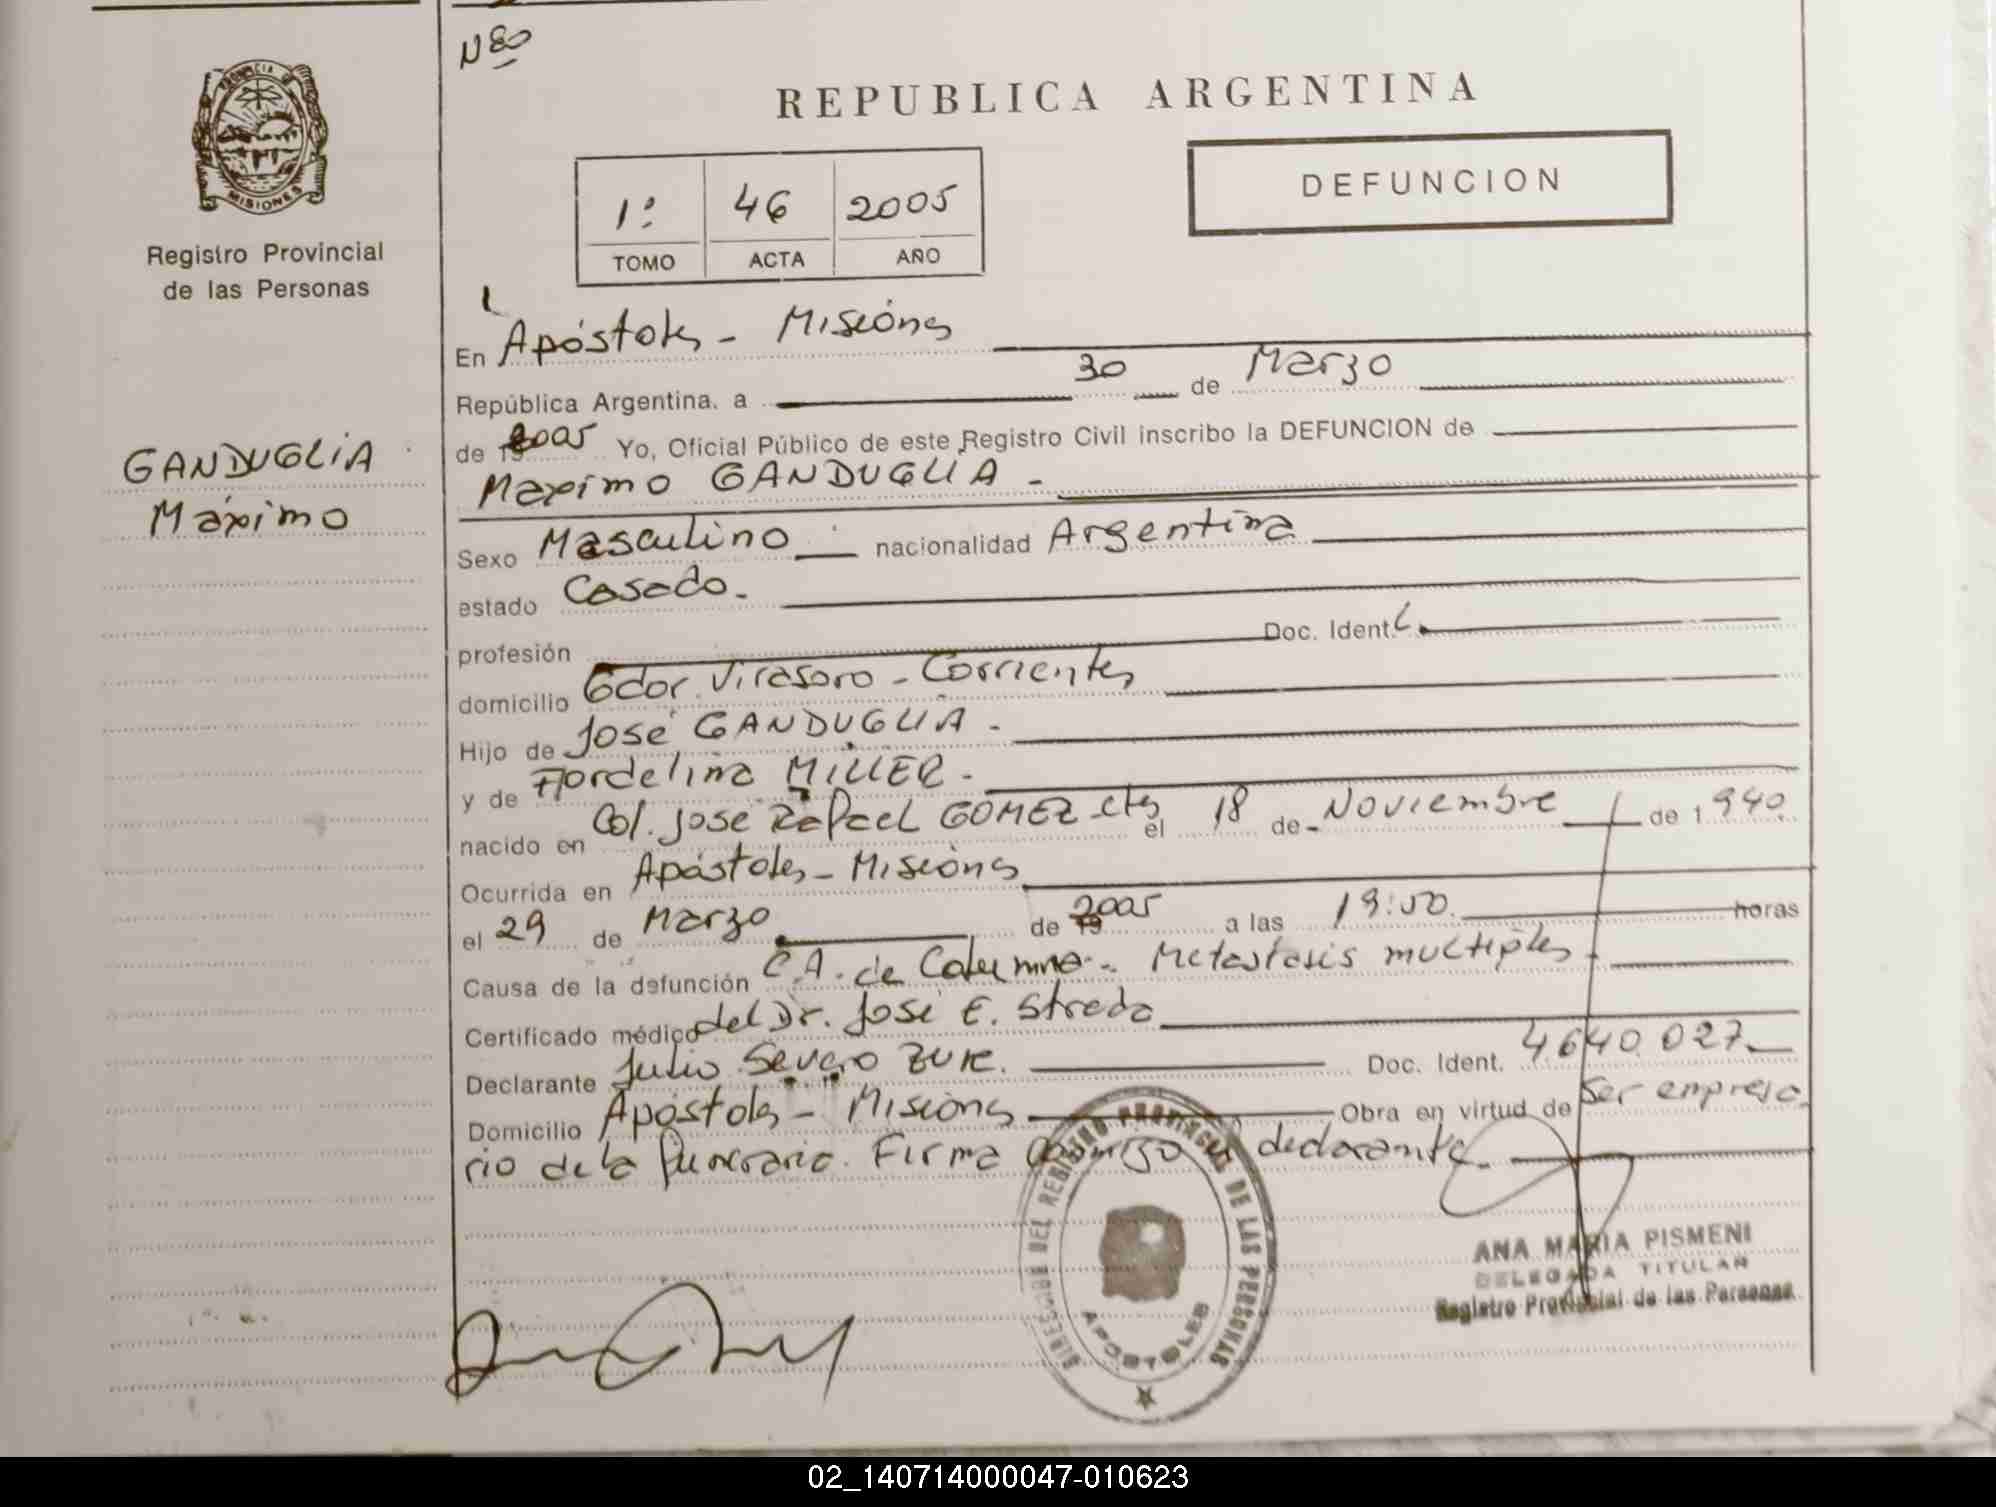 Nº 80
REPUBLICA ARGENTINA
PROVINCIA DE
MISIONES
Registro Provincial
de las Personas
DEFUNCION
1º 46 2005
TOMO ACTA AÑO
En Apóstoles - Misiones
República Argentina, a 30 de Marzo
de 2005 Yo, Oficial Público de este Registro Civil inscribo la DEFUNCION de
GANDUGLIA
Máximo
Máximo GANDUGLIA -
Sexo Masculino nacionalidad Argentina
estado Casado.
profesión Doc. Ident.
domicilio Gdor. Virasoro - Corrientes
Hijo de José GANDUGLIA -
y de Flordelina MILLER -
nacido en Col. José Rafael GOMEZ - Ctes el 18 de Noviembre de 1940
Ocurrida en Apóstoles - Misiones
el 29 de Marzo de 2005 a las 19:50 horas
Causa de la defunción CA. de Columna - Metastasis multiples
Certificado médico del Dr. José E. Streda
Declarante Julio Severo Doc. Ident. 4.640.027
Domicilio Apóstoles - Misiones Obra en virtud de Ser empresa
rio de la funeraria. Firma conmigo declarante.
DIRECCION DEL REGISTRO PROVINCIAL DE LAS PERSONAS
APOSTOLES
ANA MARIA PISMENI
DELEGADA TITULAR
Registro Provincial de las Personas
02_140714000047-010623